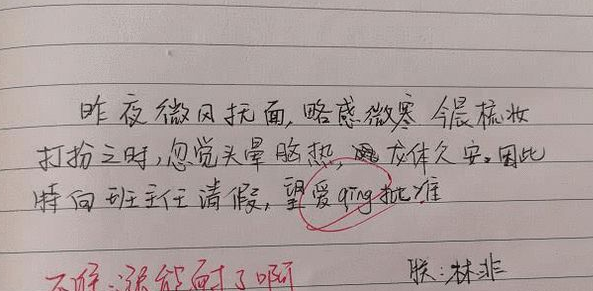 昨夜微风抚面,略感微寒 今晨梳妆
打扮之时,忽觉头晕脑热, 友体久安。因此
特向班主任请假,望爱qing批准
朕:林非
不准:涨能耐了啊